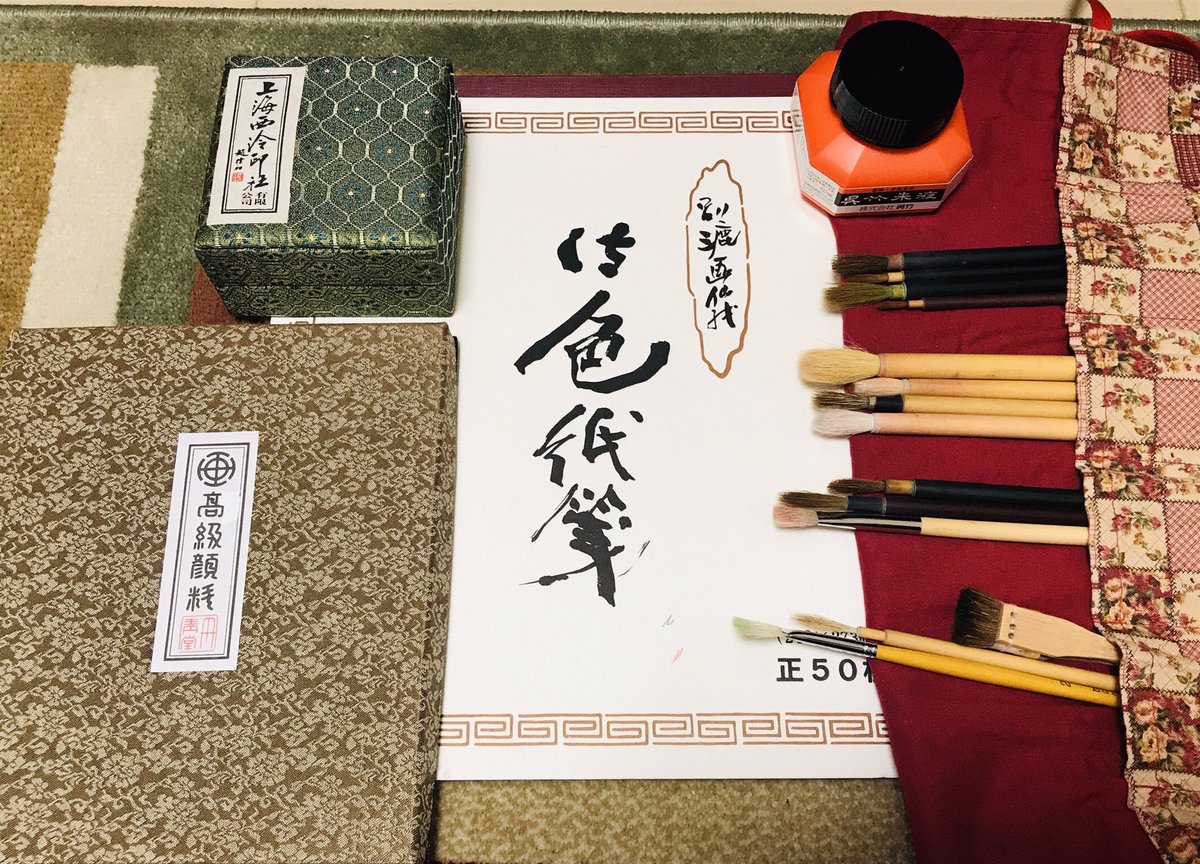 上海西泠印社
有限
公司
別漉画仙我
仿色紙箋
正50
呉竹朱液
株式会社 呉竹
高級顔料